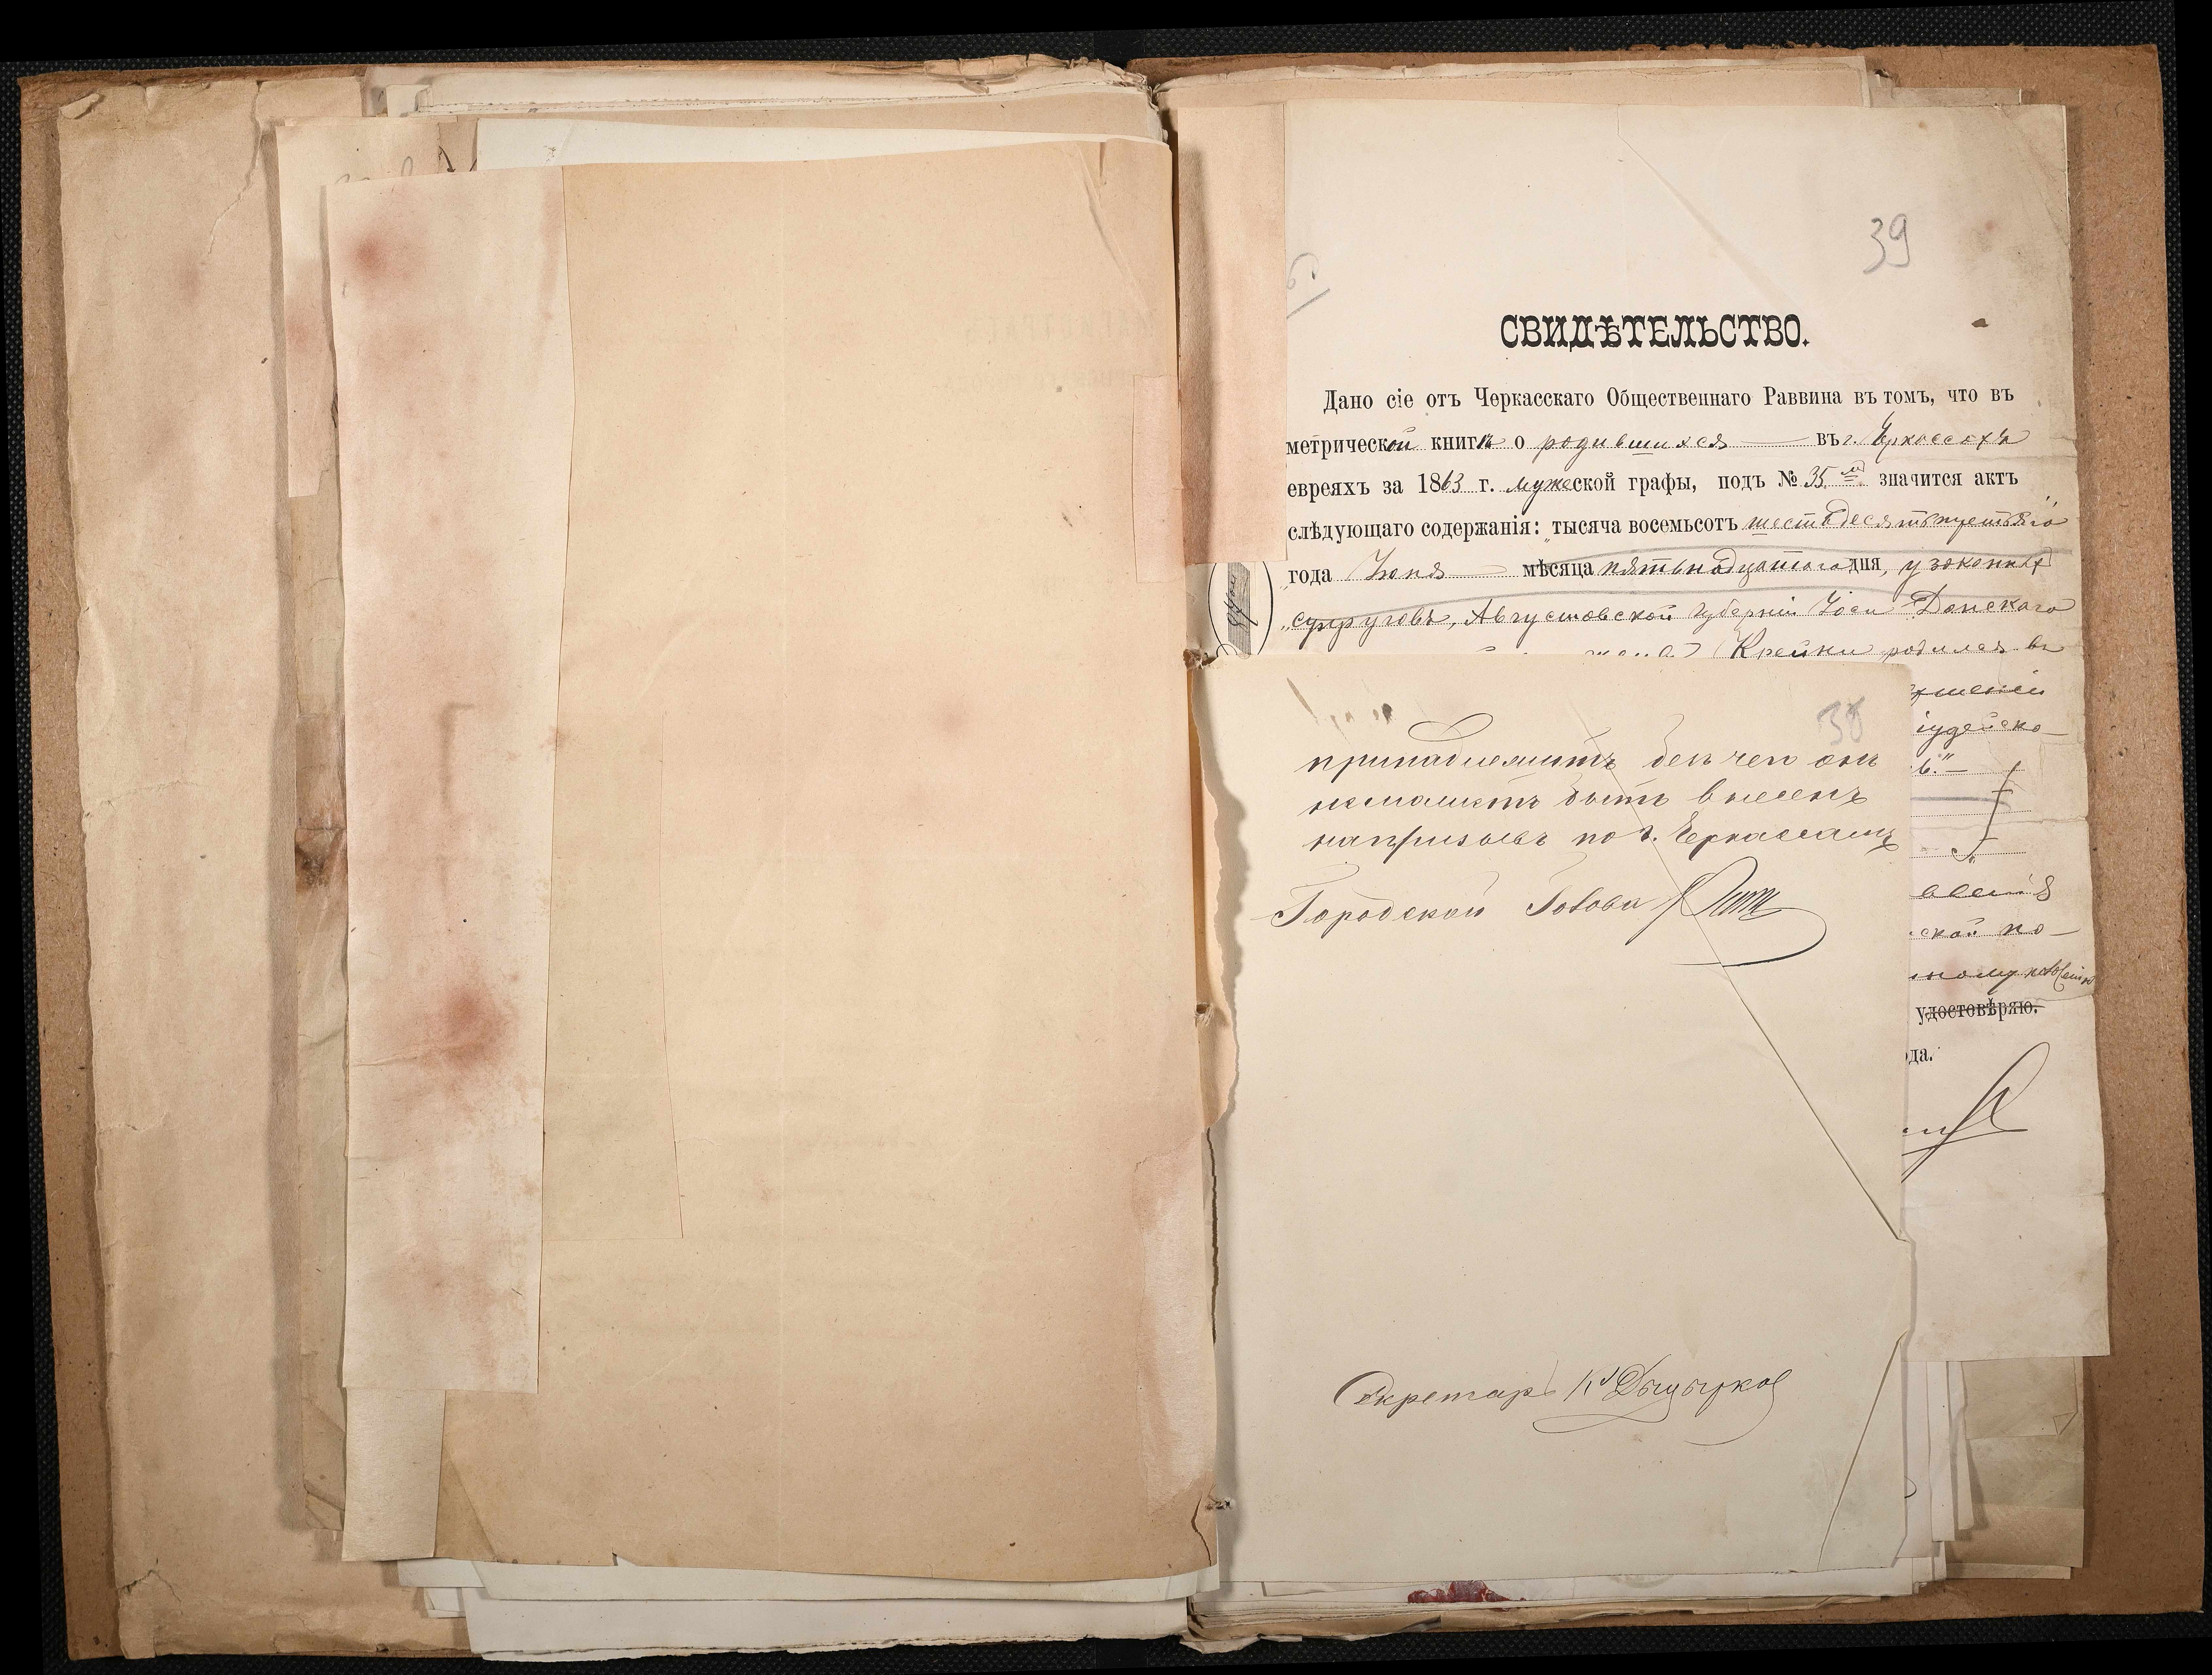 39
СВИДѢТЕЛЬСТВО.
Дано сіе отъ Черкасскаго Общественнаго Раввина въ томъ, что въ
метрической книгѣ о родившихся въ г. Черкассахъ
евреяхъ за 1863 г. мужеской графы, подъ № 35 м значится актъ
слѣдующаго содержанія: „тысяча восемьсотъ шестьдесятътретьяго
года Іюня мѣсяца пятьнадцатаго дня, у законныхъ
супруговъ, Августовской губерніи Іоси Донскаго
жена Крейни родился въ
іудейско-
ской по-
ному
удостовѣряю.
ода.
38
принадлежитъ безъ чего онъ
неможетъ быть внесенъ
напризывъ по г. Черкассамъ
Городской Голова
Секретарь